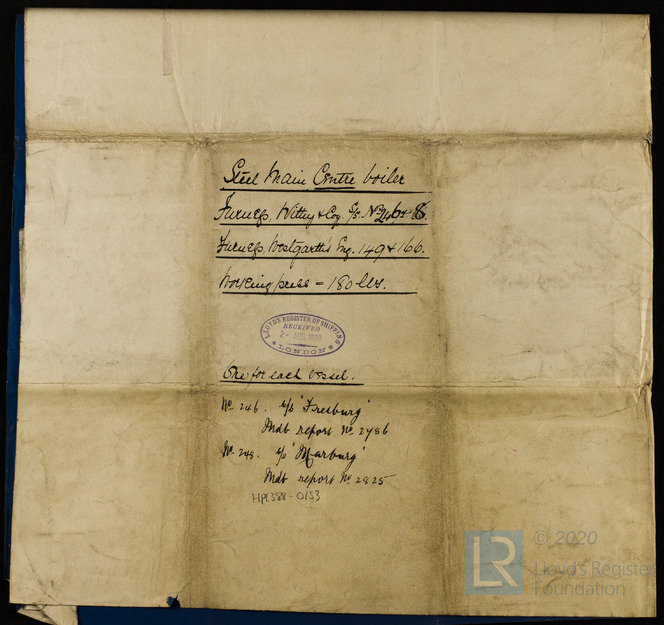 Steel Main Centre boiler
Furness, Withy & Coy. S/S. Nos 246 & 8.
Furness, Westgarth's Eng. 149 & 166.
Working press = 180 lbs.
LLOYD'S REGISTER OF SHIPPING
RECEIVED
2- AUG
LONDON
One for each vessel.
No 246. s/s "Freiburg"
Mdb report No 2786
No. 248. s/s "Marburg"
Mdb report No 2825
HPL388-0153
© 2020
LR
Lloyd's Register
Foundation